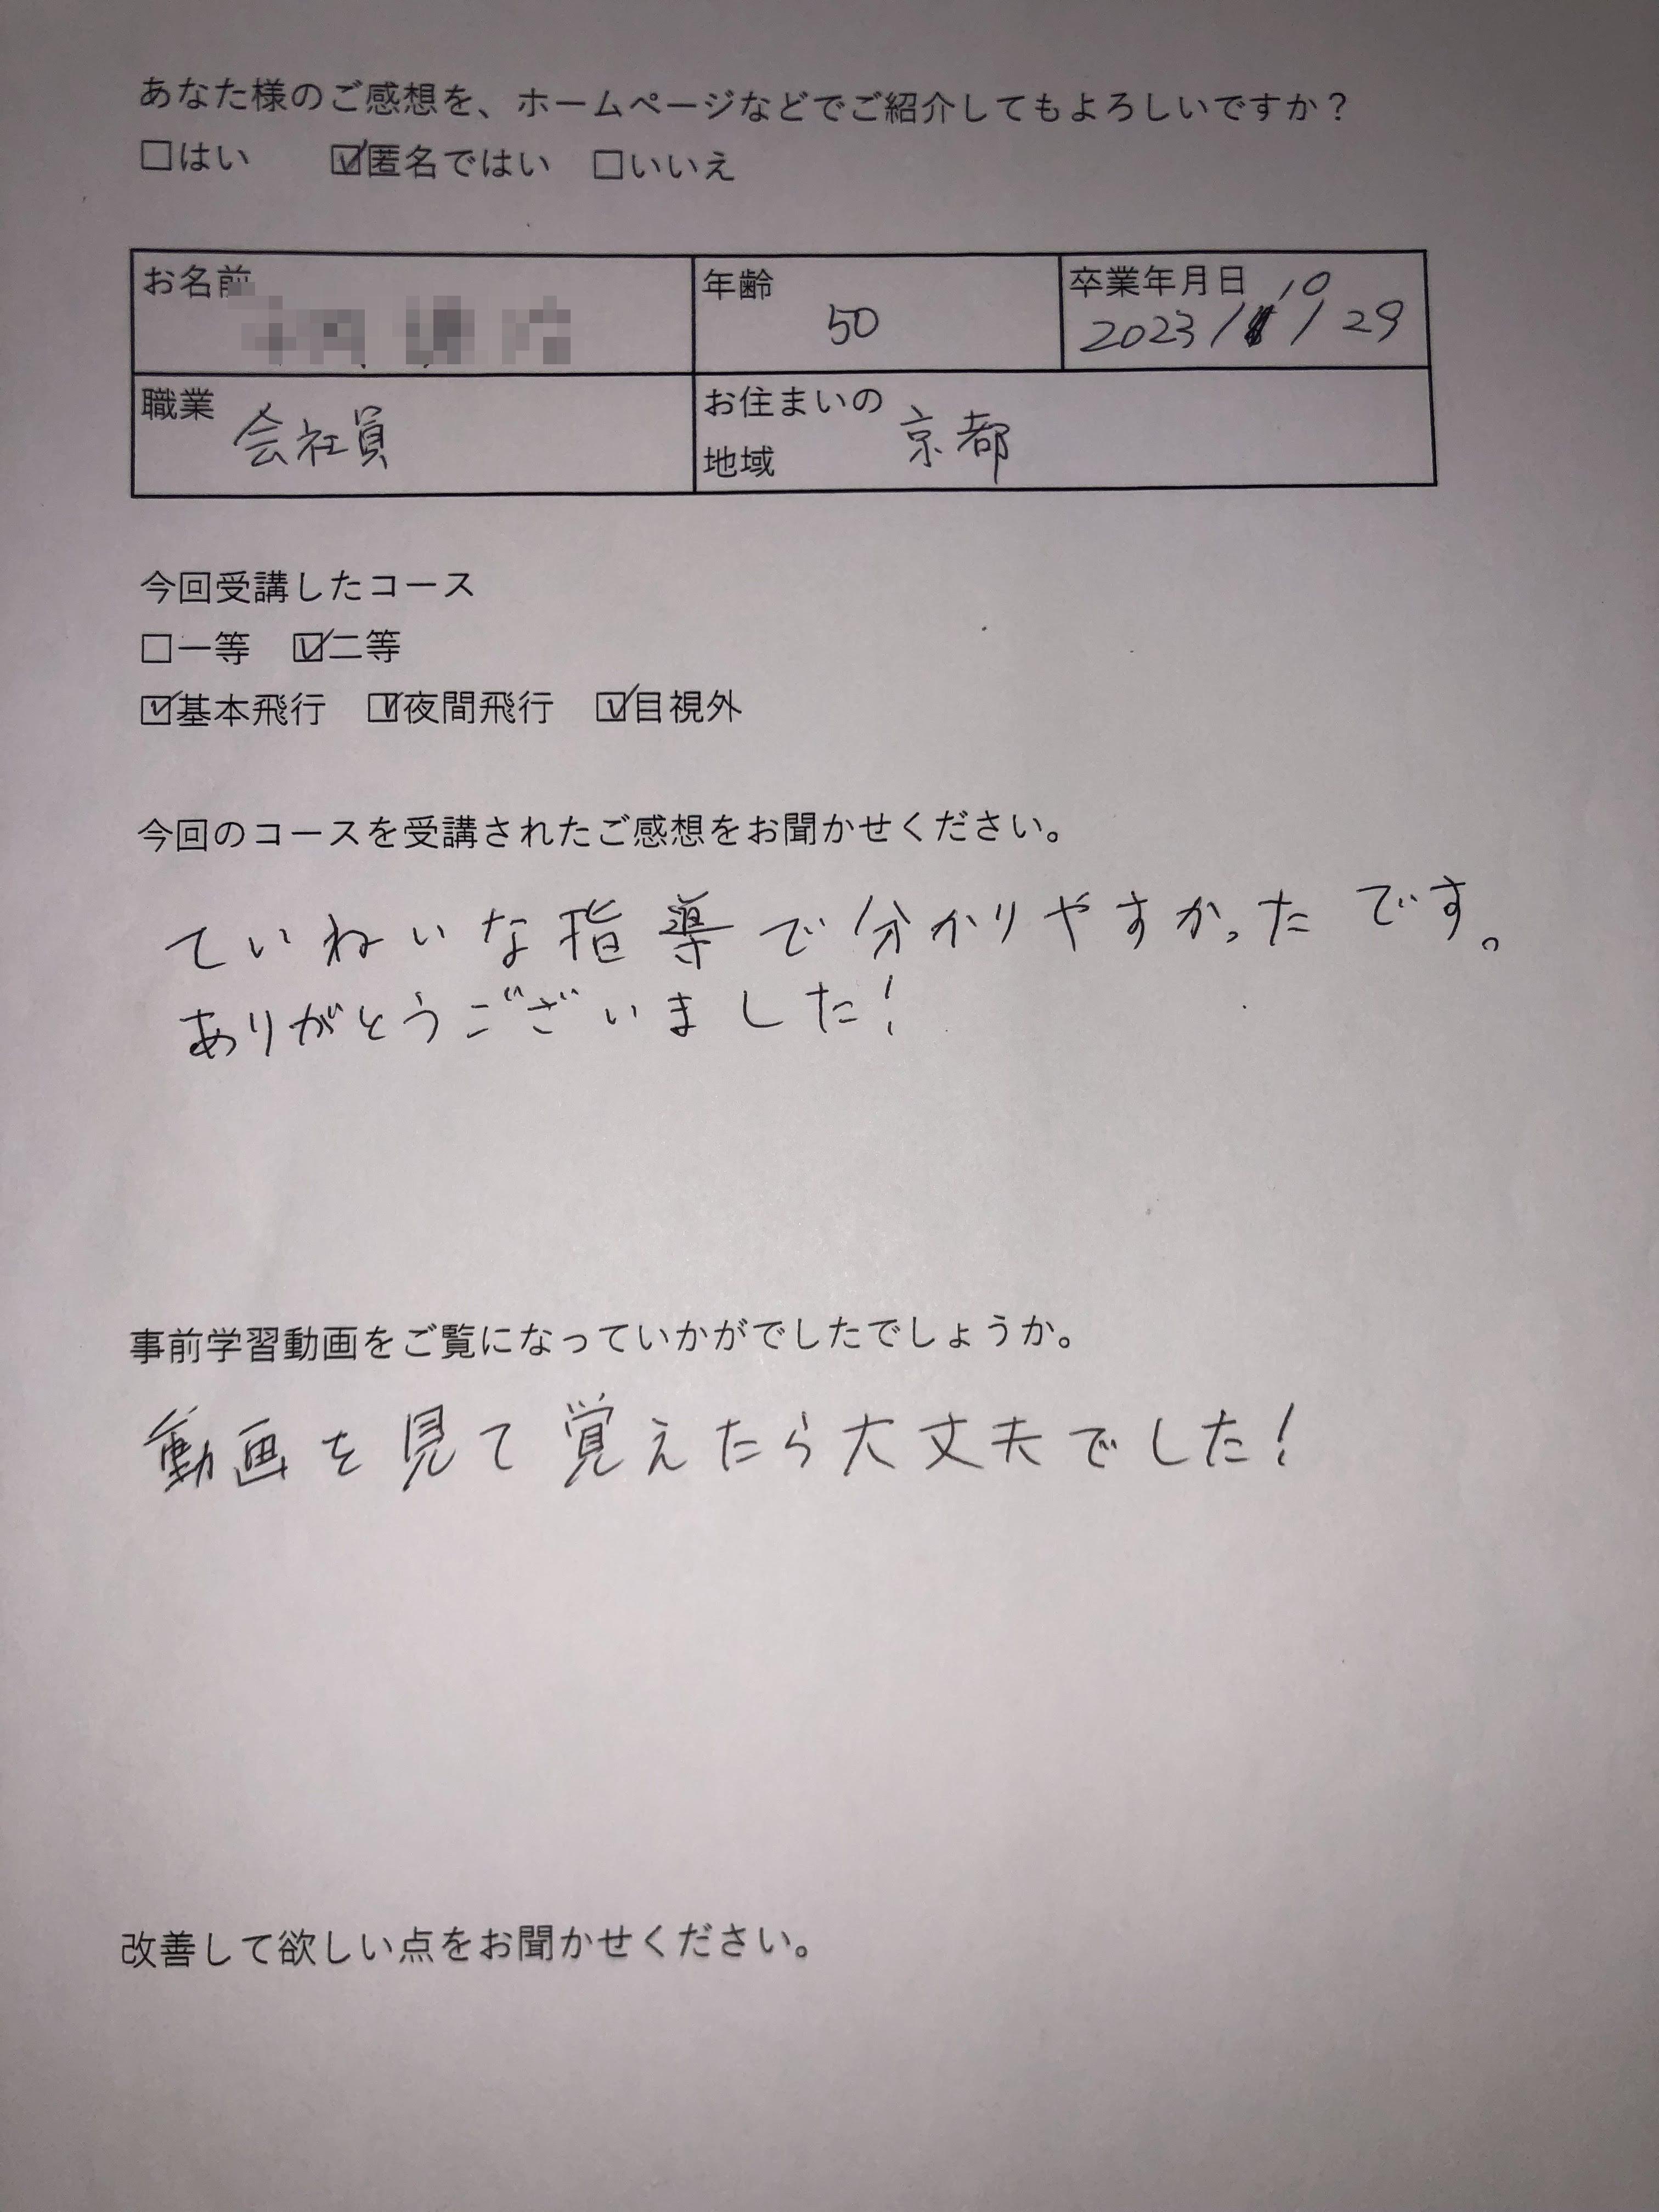 あなた様のご感想を、ホームページなどでご紹介してもよろしいですか？
□はい　☑匿名ではい　□いいえ
お名前
年齢 50
卒業年月日 2023/10/29
職業 会社員
お住まいの
地域 京都
今回受講したコース
□一等　☑二等
☑基本飛行　☑夜間飛行　☑目視外
今回のコースを受講されたご感想をお聞かせください。
ていねいな指導で分かりやすかったです。
ありがとうございました！
事前学習動画をご覧になっていかがでしたでしょうか。
動画を見て覚えたら大丈夫でした！
改善して欲しい点をお聞かせください。